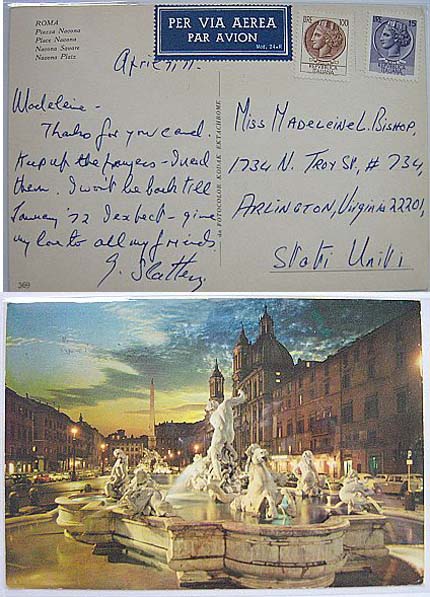 ROMA
Piazza Navona
Place Navona
Navona Square
Navona Platz
PER VIA AEREA
PAR AVION
Mod. 24-H
LIRE 100
ITALIANA
ITALIANA
April 11.
Madeleine -
Thanks for your card.
Keep up the prayers - I need
them. I won't be back till
January '72 I expect - give
my love to all my friends
G. Slattery
da FOTOCOLOR KODAK EKTACHROME
Miss MADELEINE L. BISHOP,
1734 N. TROY ST, # 734,
ARLINGTON, Virginia 22201,
Stati Uniti
369